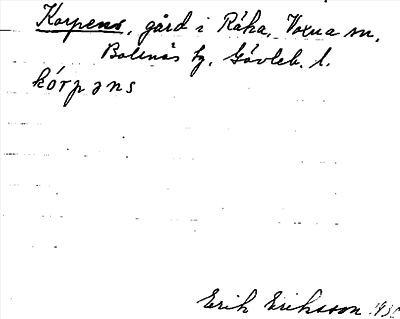 Korpens, gård i Råka, Voxna sn,
Bollnäs tg, Gävleb. l.
kórpəns
Erik Eriksson 1930